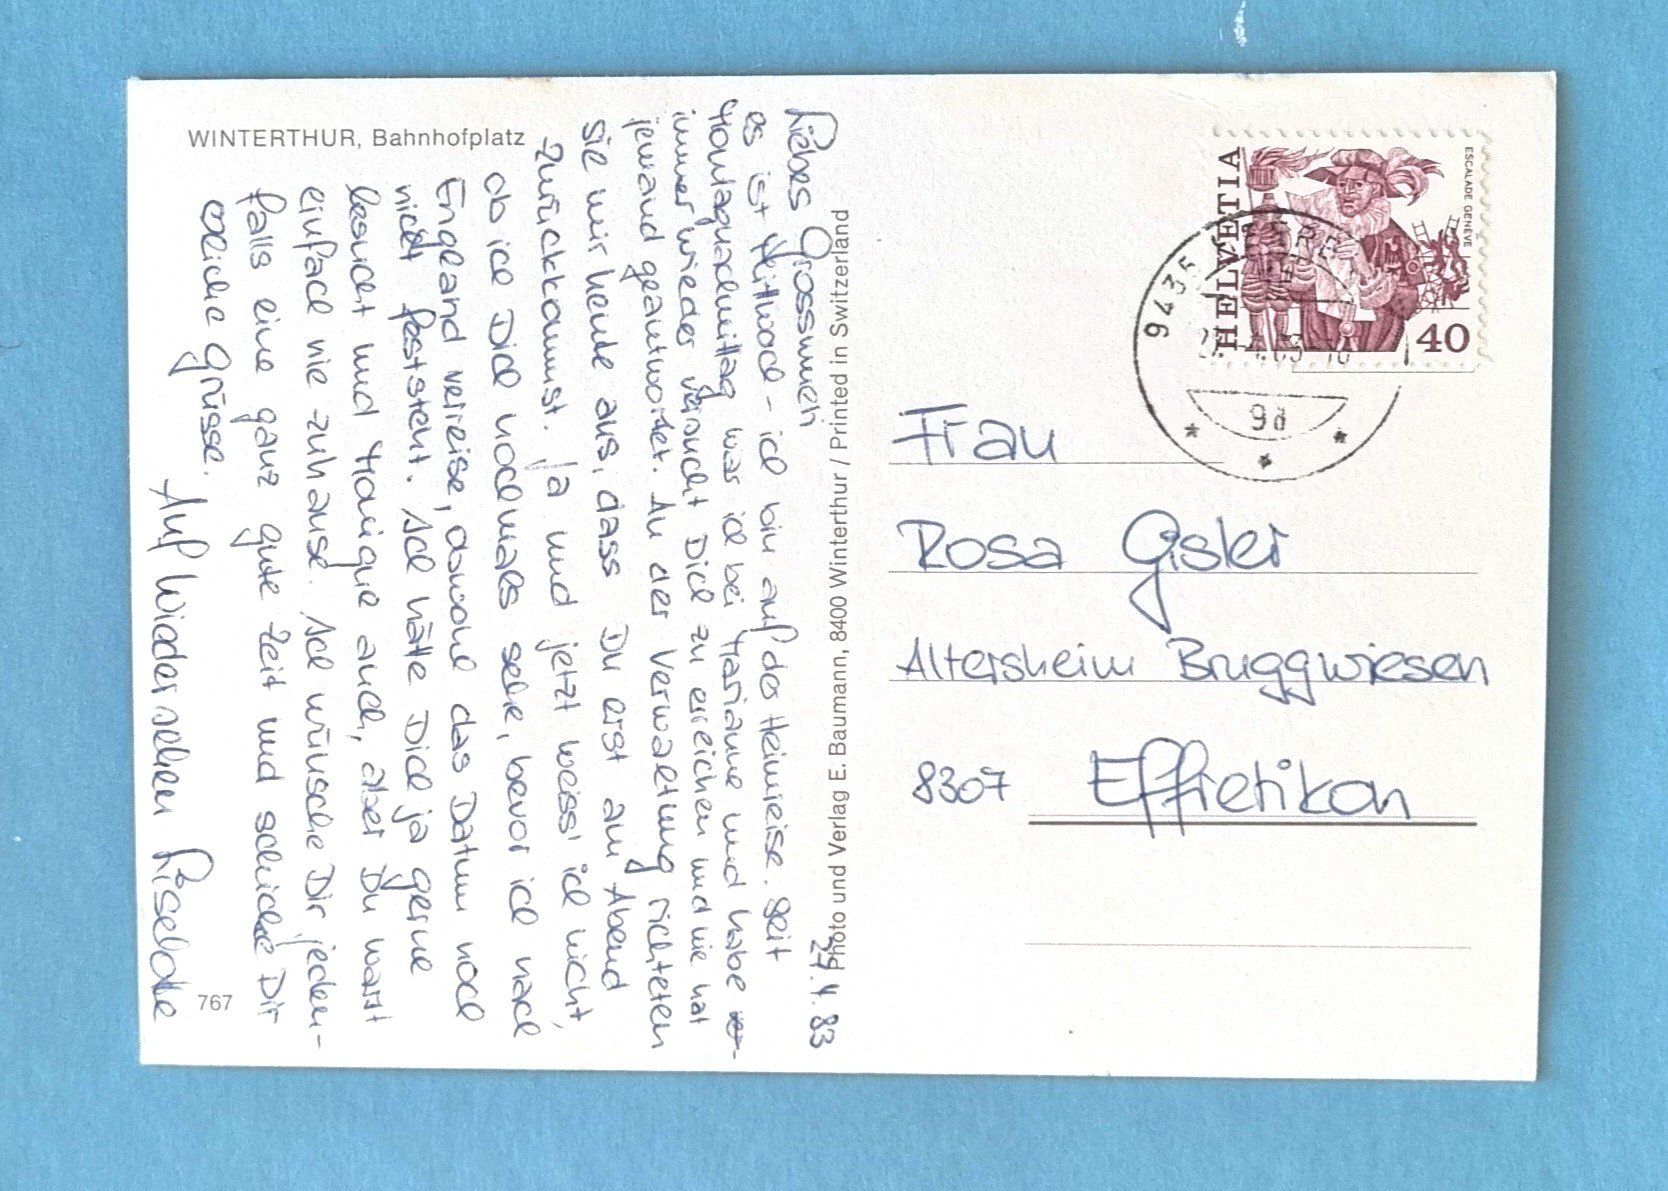 WINTERTHUR, Bahnhofplatz
27.4.83
Liebes Grossmueti
es ist Mittwoch - ich bin auf der Heimreise. Seit
Montagnachmittag war ich bei Marianne und habe
immer wieder versucht Dich zu erreichen und nie hat
jemand geantwortet. An der Verwaltung richteten
sie mir heute aus, dass Du erst am Abend
zurückkommst. Ja und jetzt weiss ich nicht,
ob ich Dich nochmals sehe, bevor ich nach
England verreise, obwohl das Datum noch
nicht feststeht. Ich hätte Dich ja gerne
besucht und Monique auch, aber Du warst
einfach nie zuhause. Ich wünsche Dir jeden-
falls eine ganz gute Zeit und schicke Dir
Grüsse.
Auf Wiedersehen Liselotte
767
Photo und Verlag E. Baumann, 8400 Winterthur / Printed in Switzerland
HELVETIA
ESCALADE GENÈVE
40
9435
9d
Frau
Rosa Gisler
Altersheim Bruggwiesen
8307 Effretikon